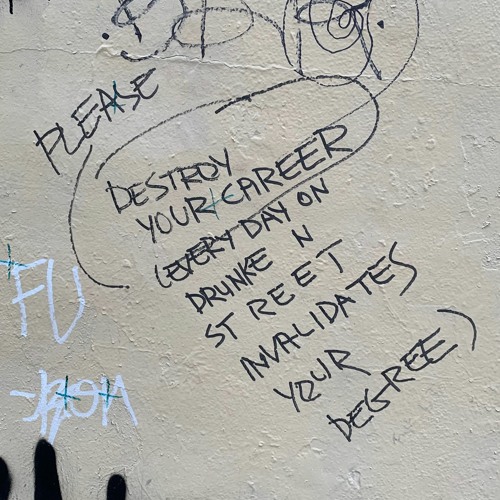 PLEASE
DESTROY
YOUR CAREER
(EVERY DAY ON
DRUNKE N
STREET
INVALIDATES
YOUR
DEGREE)
FU